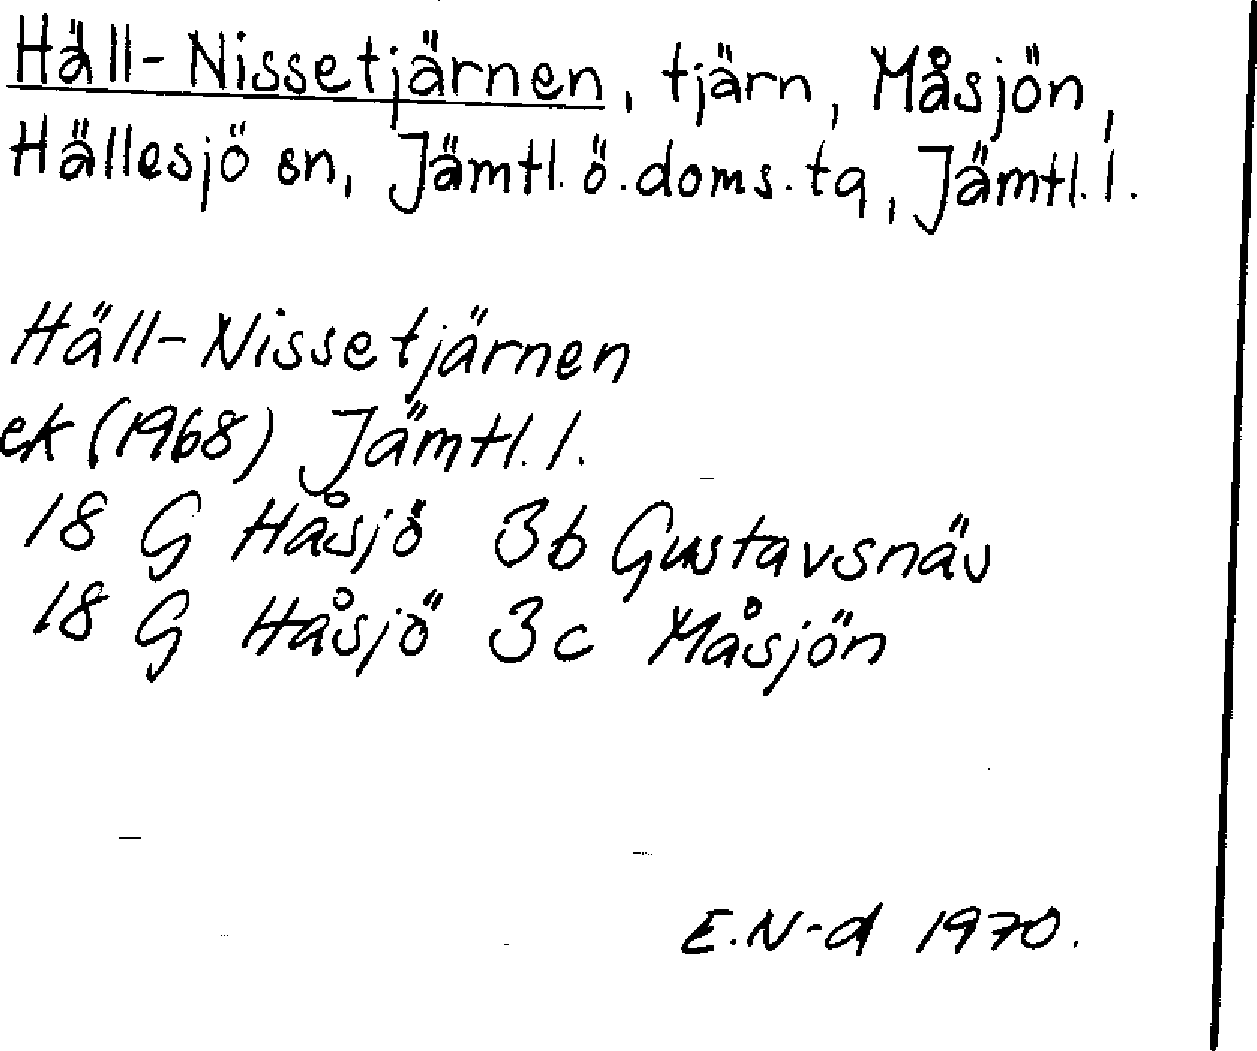 Häll-Nissetjärnen, tjärn, Måsjön,
Hällesjö sn, Jämtl. ö. doms. tg, Jämtl. l.
Häll-Nissetjärnen
ek (1968) Jämtl. l.
18 G Håsjö 3b Gustavsnäs
18 G Håsjö 3c Måsjön
E. N-d 1970.